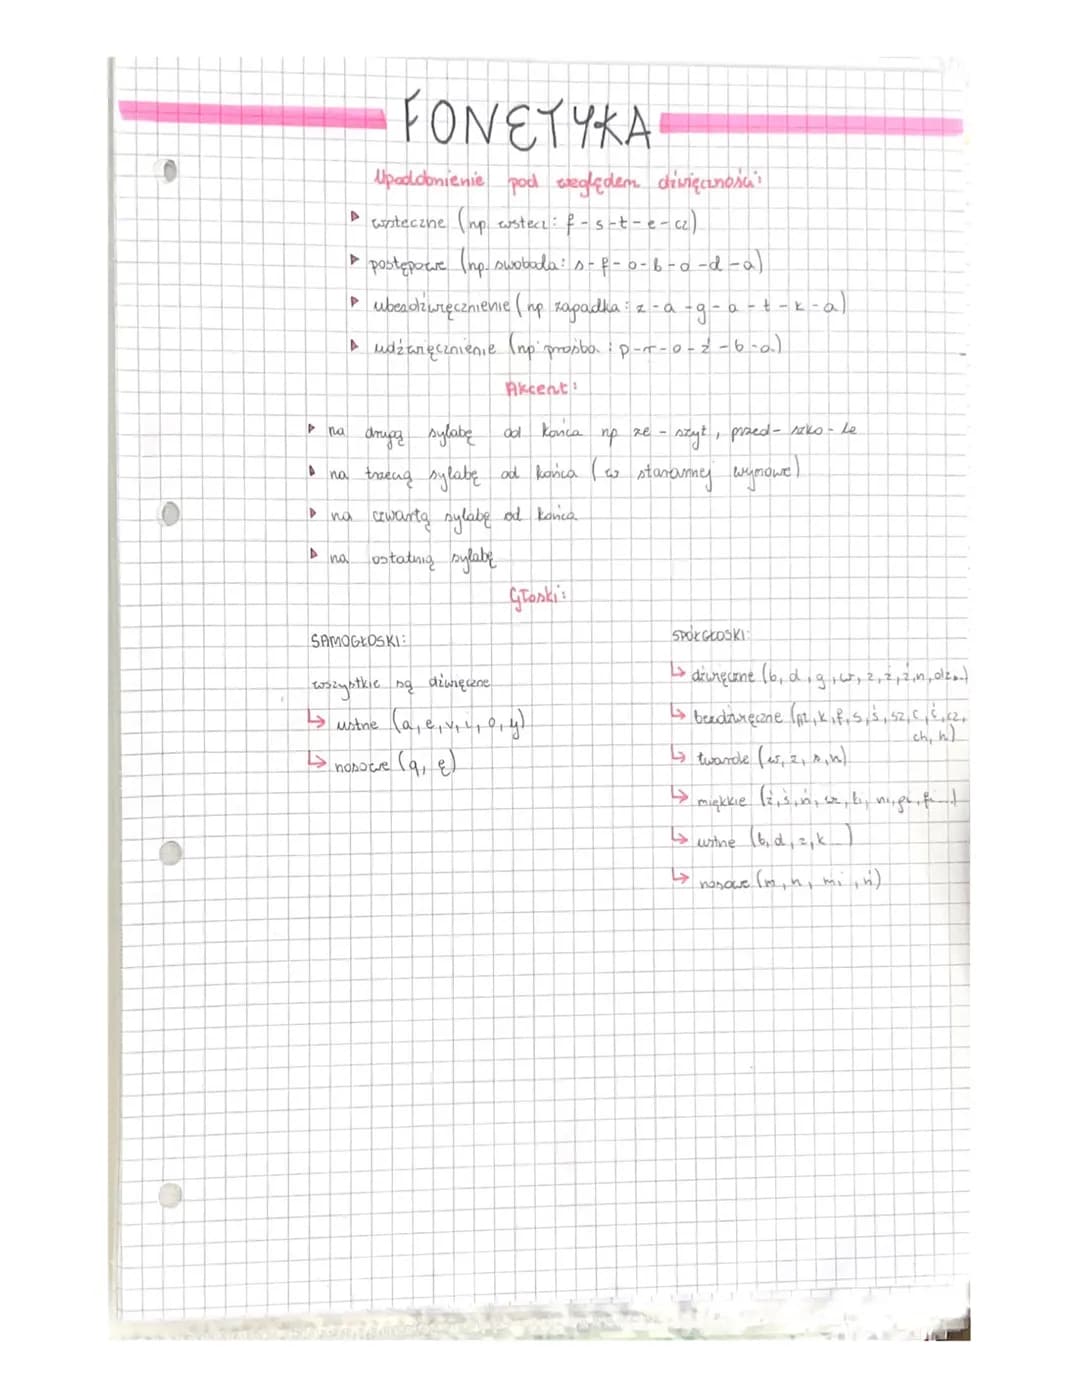 FONETYKA
Upodobnienie pod względem dźwięczności:
▶ wsteczne (np. wstecz: f-s-t-e-cz)
▶ postępowe (np. swoboda: s-f-o-b-o-d-a)
▶ ubezdźwięcznienie (np zapadka: z-a-g-a-t-k-a)
▶ udźwięcznienie (np prośba: p-r-o-ź-b-a)
Akcent:
▶ na drugą sylabę od końca np ze-szyt, przed-szko-le
▶ na trzecią sylabę od końca (w starannej wymowe)
▶ na czwartą sylabę od końca
▶ na ostatnią sylabę
Głoski:
SAMOGŁOSKI:
wszystkie są dźwięczne
↳ ustne (a, e, u, i, o, y)
↳ nosowe (ą, ę)
SPÓŁGŁOSKI:
↳ dźwięczne (b, d, g, w, z, ż, ź, n, dz...)
↳ bezdźwięczne (p, t, k, f, s, ś, sz, c, ć, cz,
ch, h)
↳ twarde (w, z, s, n)
↳ miękkie (ź, ś, ń, bi, ni, gi, fi...)
↳ ustne (b, d, z, k...)
↳ nosowe (m, n, mi, ń)